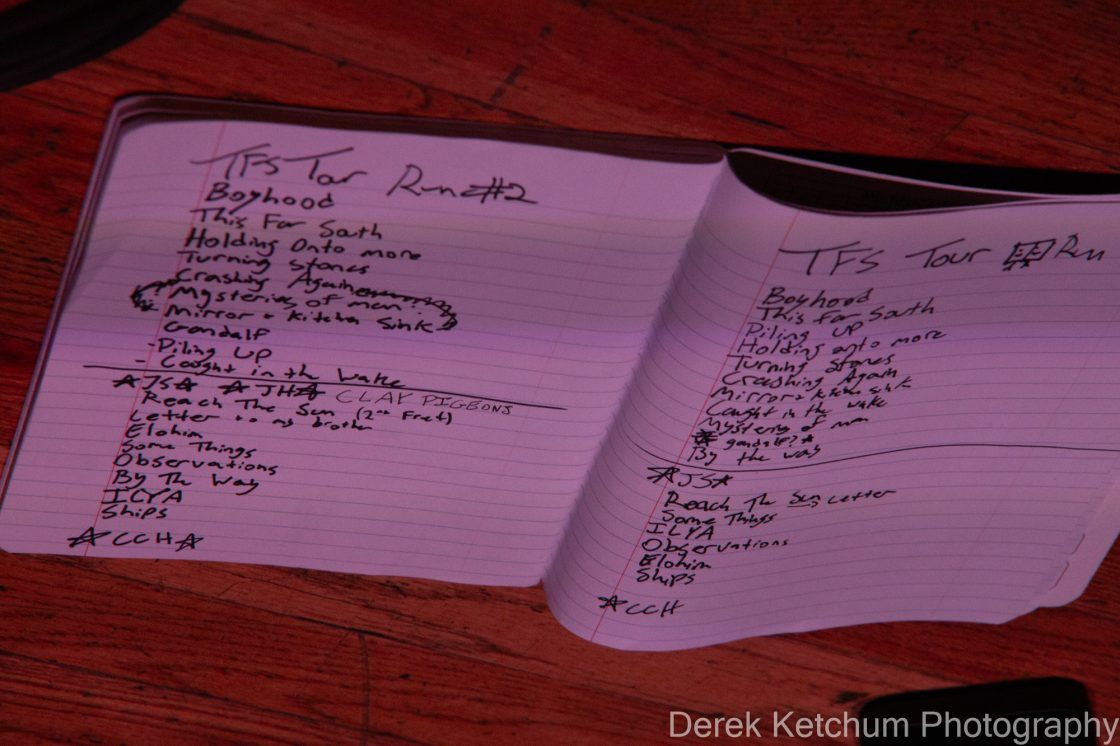 TFS Tour Run #2
Boyhood
This Far South
Holding Onto more
Turning Stones
Crashing Again
Mysterious of man
Mirror + kitchen Sink
Gandalf
- Piling Up
- Caught in the Wake
☆JS☆ ☆JH☆ CLAY PIGEONS
Reach The Sun (2nd Fret)
Letter to my brother
Elohim
Some Things
Observations
By The Way
ILYA
Ships
☆CCH☆
TFS Tour Run
Boyhood
This Far South
Piling Up
Holding onto more
Turning Stones
Crashing Again
Mirror + kitchen sink
Caught in the wake
Mysterious of man
☆ gandalf? ☆
By the way
☆JS☆
Reach The Sun, Letter
Some Things
ILYA
Observations
Elohim
Ships
☆CCH
Derek Ketchum Photography